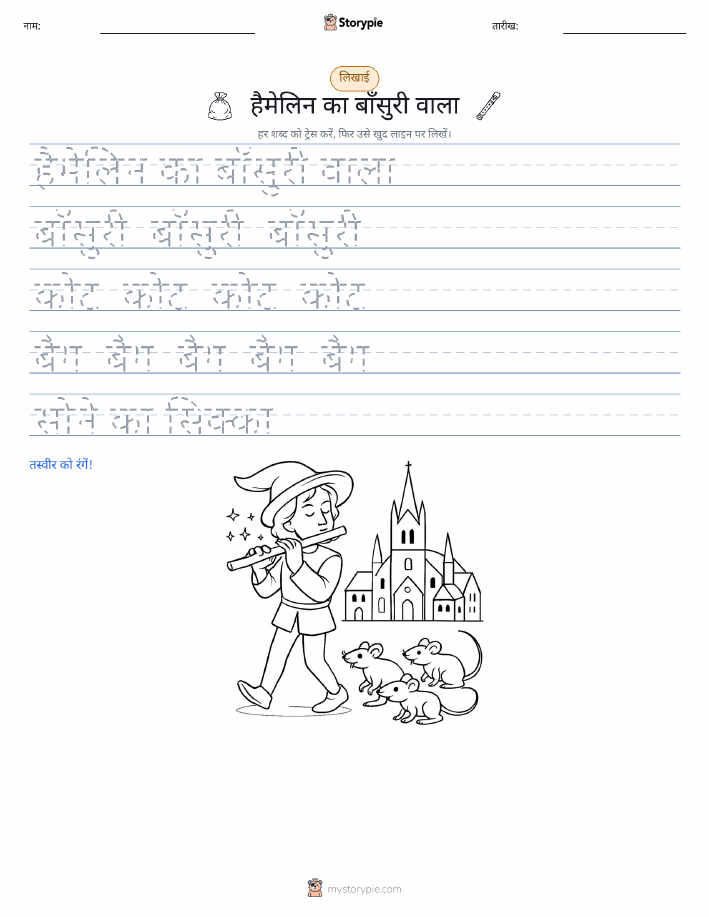 नाम:
Storypie
तारीख:
लिखाई
हैमेलिन का बाँसुरी वाला
हर शब्द को ट्रेस करें, फिर उसे खुद लाइन पर लिखें।
हैमेलिन का बाँसुरी वाला
बाँसुरी बाँसुरी बाँसुरी
कोट कोट कोट कोट
बैग बैग बैग बैग बैग
सोने का सिक्का
तस्वीर को रंगें!
mystorypie.com